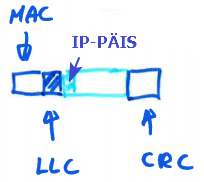 MAC
IP-PÄIS
LLC
CRC